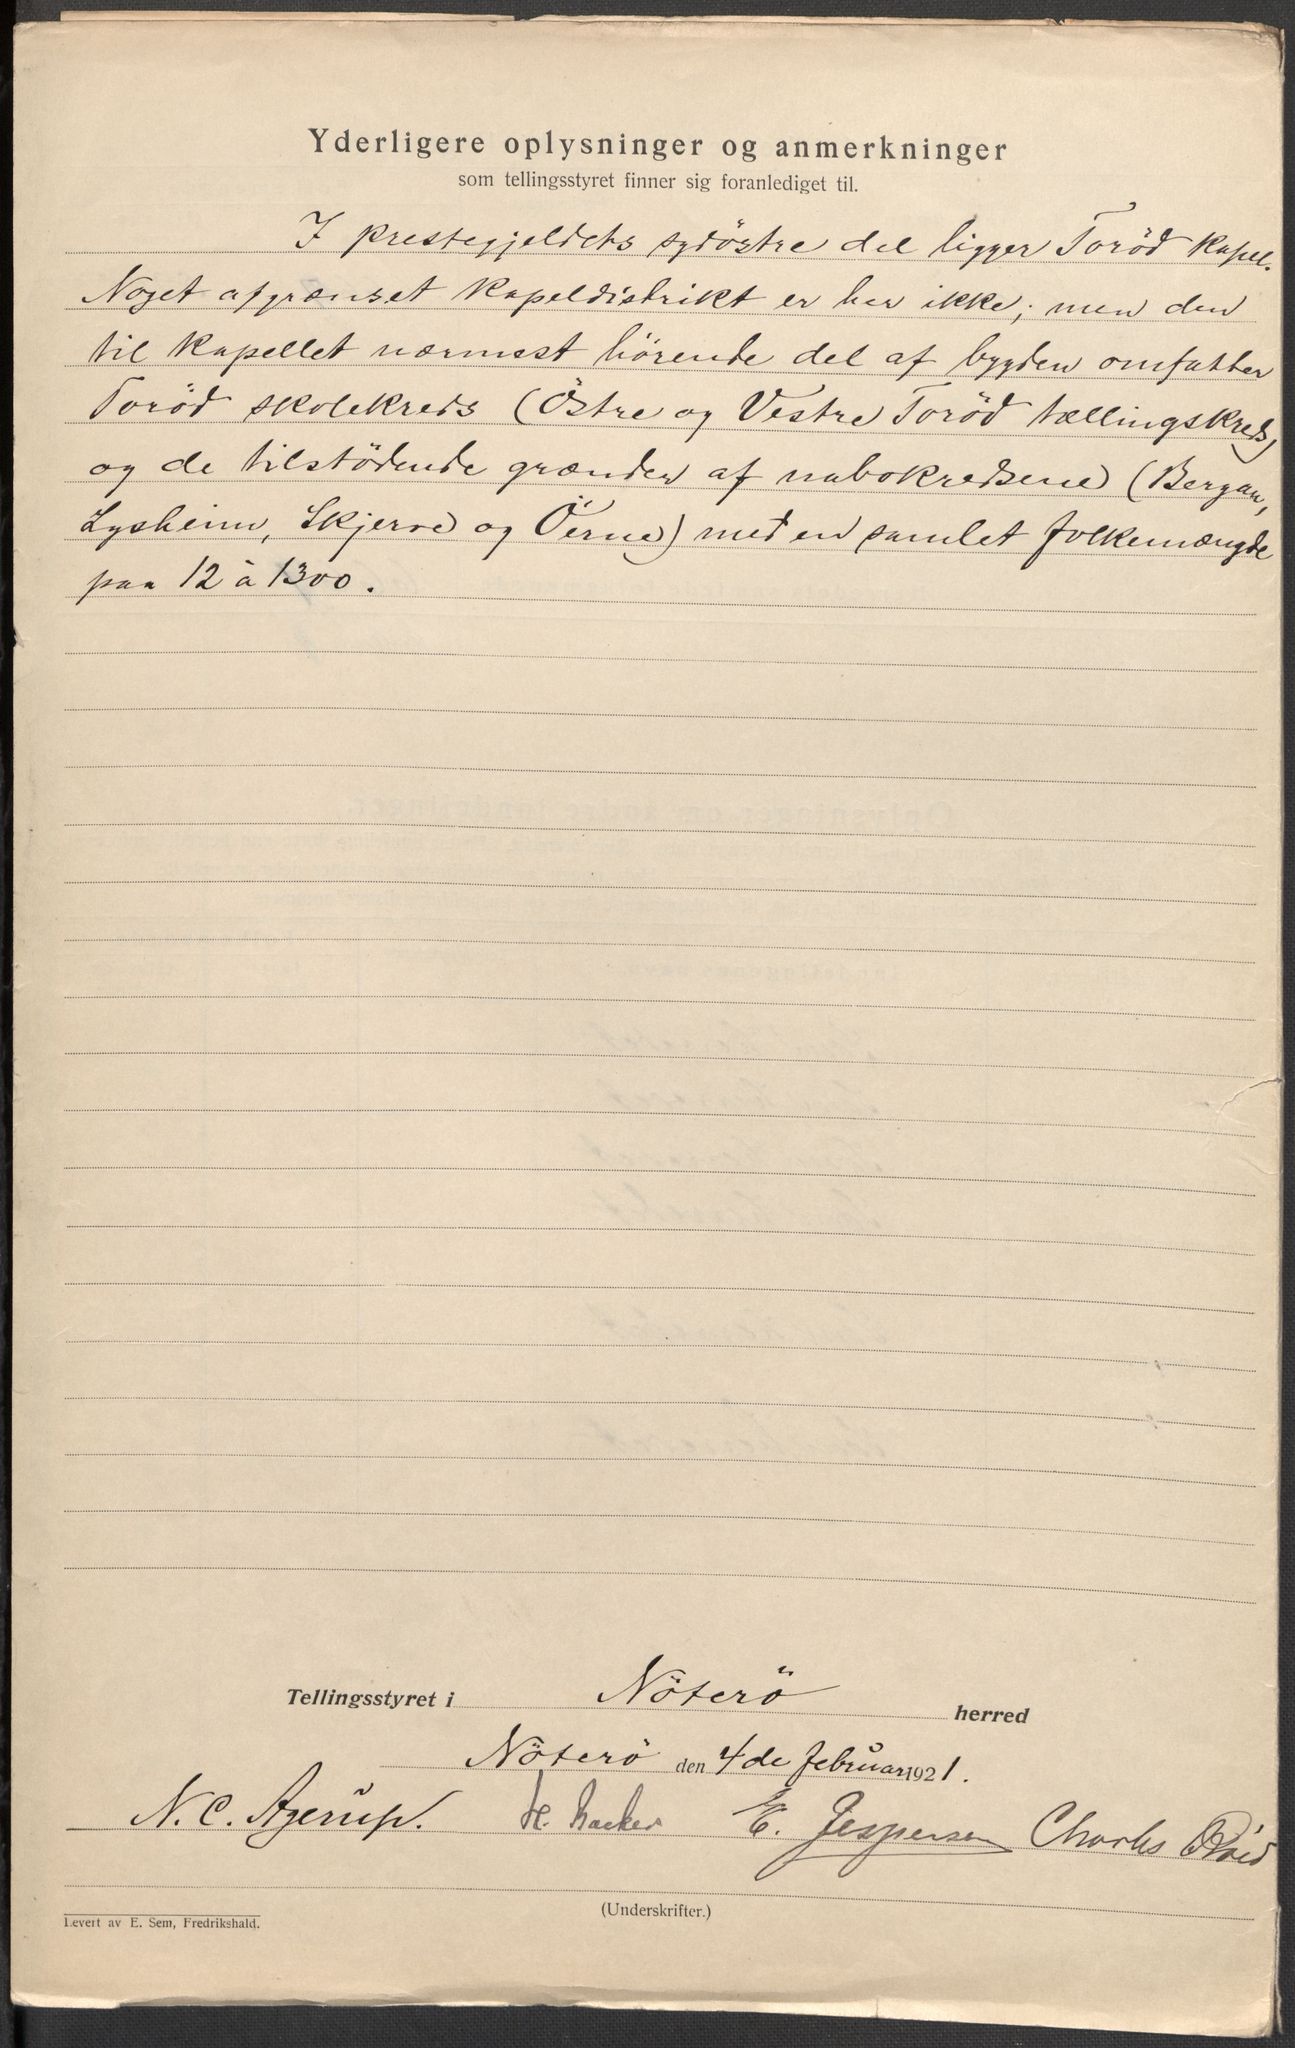 Yderligere oplysninger og anmerkninger
som tellingsstyret finner sig foranlediget til.
I prestegjeldets sydöstre del ligger Torød kapel.
Noget afgrænset kapeldistrikt er her ikke; men den
til kapellet nærmest hörende del af bygden omfatter
Torød skolekreds (Östre og Vestre Torød tællingskreds)
og de tilstödende grænder af nabokredsene (Bergan,
Lysheim, Skjerve og Öerne) med en samlet folkemængde
paa 12 à 1300.
Tellingsstyret i Nöterö herred
Nöterö den 4de februar 1921.
N. C. Agerup. H. Backer E. Jespersen Charles
(Underskrifter.)
Levert av E. Sem, Fredrikshald.